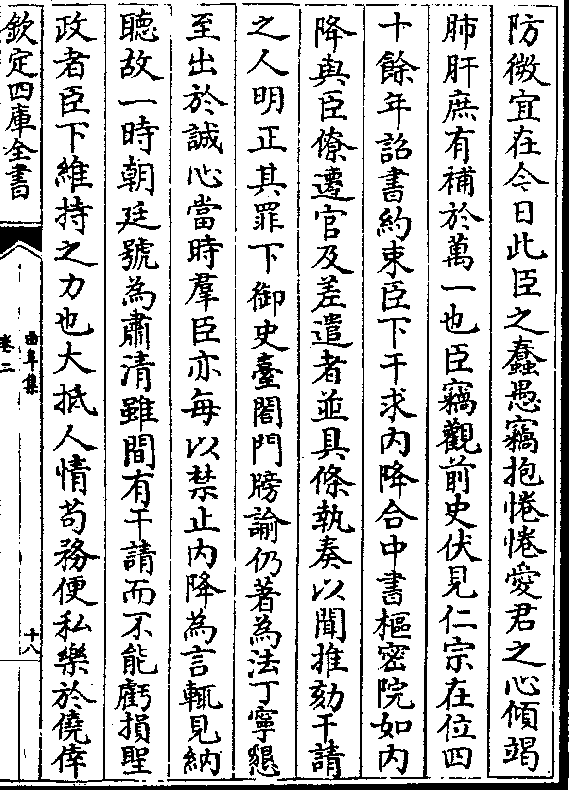 防微宜在今日此臣之蠢愚竊抱惓惓愛君之心傾竭
肺肝庶有補於萬一也臣竊觀前史伏見仁宗在位四
十餘年詔書約束臣下干求内降合中書樞密院如内
降與臣僚遷官及差遣者並具條執奏以聞推劾干請
之人明正其罪下御史臺閤門牓諭仍著為法丁寧懇
至出於誠心當時羣臣亦每以禁止内降為言輒見納
聽故一時朝廷號為肅清雖間有干請而不能虧損聖
政者臣下維持之力也大抵人情苟務便私樂於僥倖
欽定四庫全書
曲阜集
卷二
十八